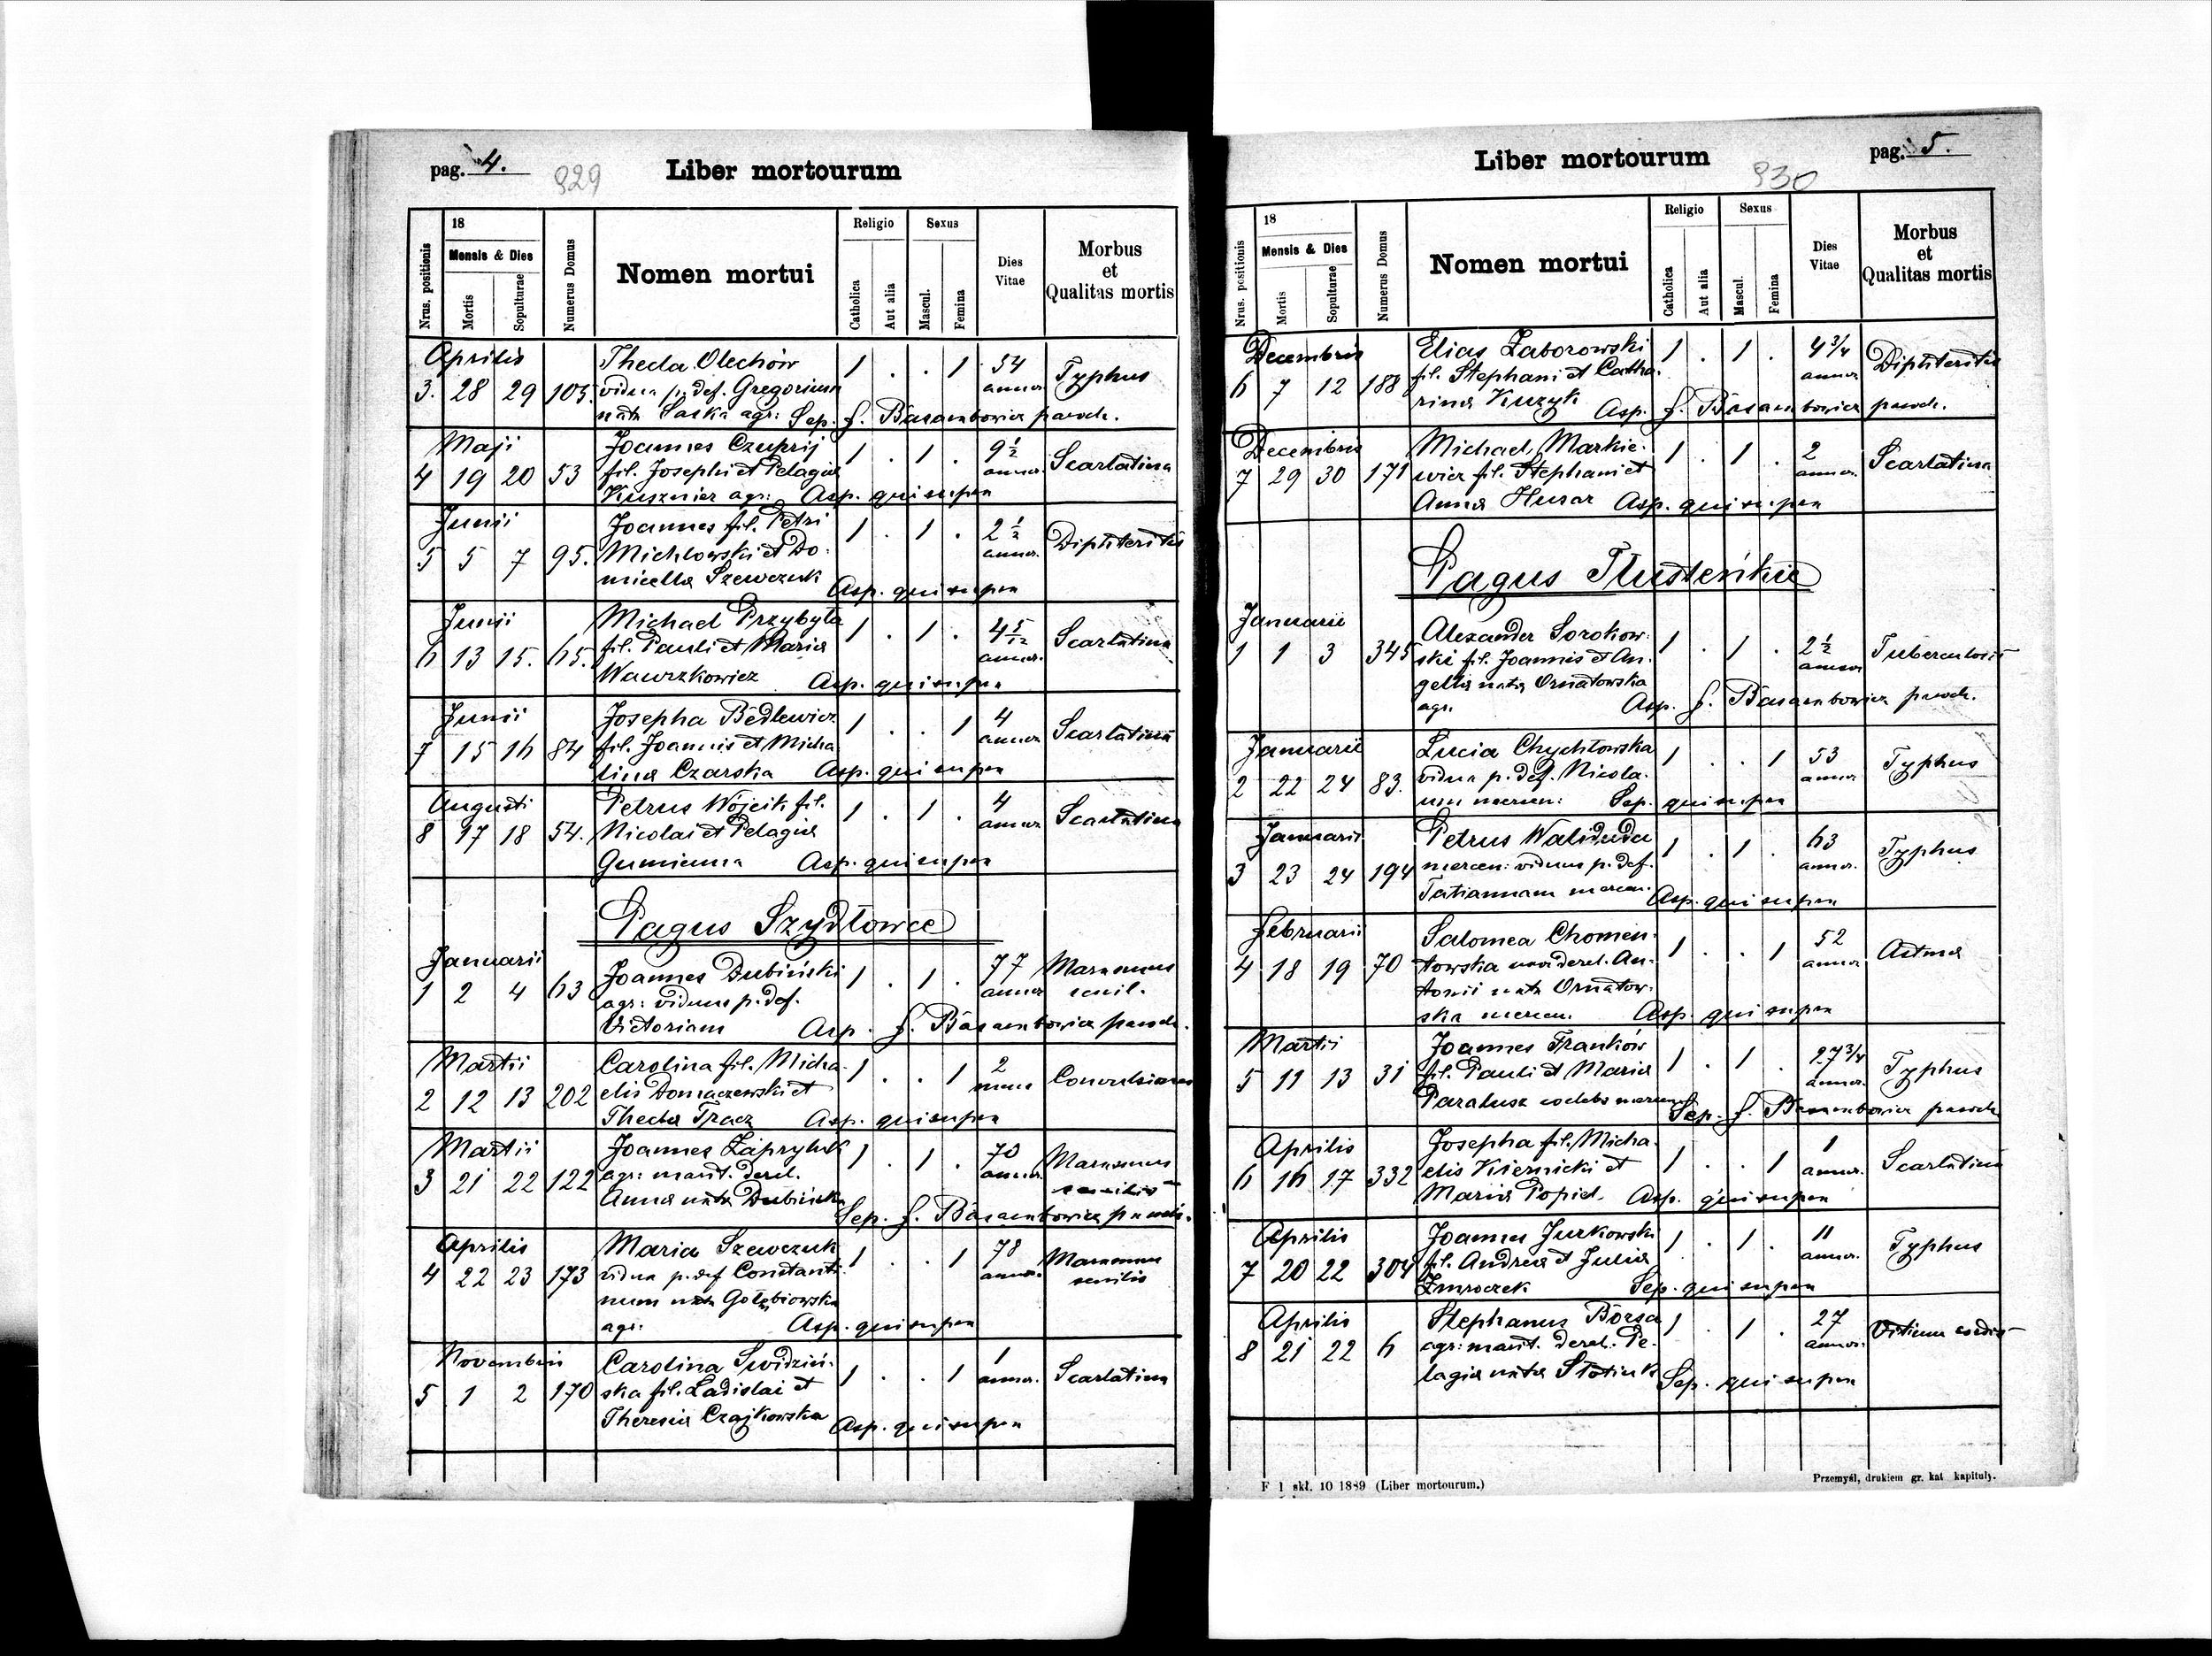 pag. 4. 929 Liber mortourum
Nrus. positionis
18
Mensis & Dies
Mortis
Sepulturae
Numerus Domus
Nomen mortui
Religio
Catholica
Aut alia
Sexus
Mascul.
Femina
Dies Vitae
Morbus
et
Qualitas mortis
Aprilis Theda Olechów
3. 28 29 105. vidua p. def. Gregorium 1 . . 1 54 annor. Typhus
nata Saska agr: Sep. f. Basarabowicz paroch.
Maji Joannes Czuprij
4 19 20 53 fil. Josephi et Pelagia 1 . 1 . 9 1/2 annor. Scarlatina
Kusznier agr: Asp. qui supra
Junii Joannes fil. Petri
5 5 7 95. Michlowski et Do- 1 . 1 . 2 1/2 annor. Diphteritis
micella Szewczuk Asp. qui supra
Junii Michael Przybyła
6 13 15. 65. fil. Pauli et Maria 1 . 1 . 4 5/12 annor. Scarlatina
Wawrzkowicz Asp. qui supra
Junii Josepha Bedlewicz
7 15 16 84 fil. Joannis et Micha- 1 . . 1 4 annor. Scarlatina
lina Czarska Asp. qui supra
Augusti Petrus Wójcik fil.
8 17 18 54. Nicolai et Pelagia 1 . 1 . 4 annor. Scarlatina
Gumienna Asp. qui supra
Pagus Szydłowce
Januarii Joannes Dubiński
1 2 4 63 agr: viduus p. def. 1 . 1 . 77 annor. Marasmus senil.
Victoriam Asp. f. Basarabowicz paroch.
Martii Carolina fil. Micha-
2 12 13 202 elis Domaczewski et 1 . . 1 2 mens Convulsiones
Theda Tracz Asp. qui supra
Martii Joannes Zapryluk
3 21 22 122 agr: marit. derel. 1 . 1 . 70 annor. Marasmus senilis
Anna nata Dubińska
Sep. f. Basarabowicz paroch.
Aprilis Maria Szewczuk
4 22 23 173 vidua p. def Constanti- 1 . . 1 78 annor. Marasmus senilis
num nata Gołębiowska
agr: Asp. qui supra
Novembris Carolina Swidziń-
5 1 2 170 ska fil. Ladislai et 1 . . 1 1 annor. Scarlatina
Theresia Czajkowska Asp. qui supra
Liber mortourum 930 pag. 5.
Nrus. positionis
18
Mensis & Dies
Mortis
Sepulturae
Numerus Domus
Nomen mortui
Religio
Catholica
Aut alia
Sexus
Mascul.
Femina
Dies Vitae
Morbus
et
Qualitas mortis
Decembris Elias Zaborowski
6 7 12 188 fil. Stephani et Catha- 1 . 1 . 4 3/4 annor Diphteritis
rina Kuzyk Asp. f. Basarabowicz paroch.
Decembris Michael Markie-
7 29 30 171 wicz fil. Stephani et 1 . 1 . 2 annor. Scarlatina
Anna Husar Asp. qui supra
Pagus Tłusteńkie
Januarii Alexander Sorokow-
1 1 3 345 ski fil. Joannis et An- 1 . 1 . 2 1/2 annor Tuberculosis
gella nata Ornatowska
agr. Asp. f. Basarabowicz paroch.
Januarii Lucia Chychłowska
2 22 24 83. vidua p. def. Nicola- 1 . . 1 53 annor Typhus
um mercen: Sep. qui supra
Januarii Petrus Waliduda
3 23 24 194 mercen: viduus p. def. 1 . 1 . 63 annor. Typhus
Tatiannam mercen. Asp. qui supra
Februarii Salomea Chomen-
4 18 19 70 towska derel. An- 1 . . 1 52 annor Astma
tonii nata Ornatow-
ska mercen. Asp. qui supra
Martii Joannes Franków
5 11 13 31 fil. Pauli et Maria 1 . 1 . 27 3/4 annor. Typhus
Paralusz coelebs mercen.
Sep. f. Basarabowicz paroch
Aprilis Josepha fil. Micha-
6 16 17 332 elis Kiernicki et 1 . . 1 1 annor. Scarlatina
Maria Popiel. Asp. qui supra
Aprilis Joannes Jurkowski
7 20 22 304 fil. Andrea et Julia 1 . 1 . 11 annor. Typhus
Zmroczek Sep. qui supra
Aprilis Stephanus Borsa
8 21 22 6 agr: marit. derel. Pe- 1 . 1 . 27 annor. Vitium cordis
lagia nata Slotiuk Sep. qui supra
F 1 skł. 10 1889 (Liber mortourum.)
Przemyśl, drukiem gr. kat kapituły.